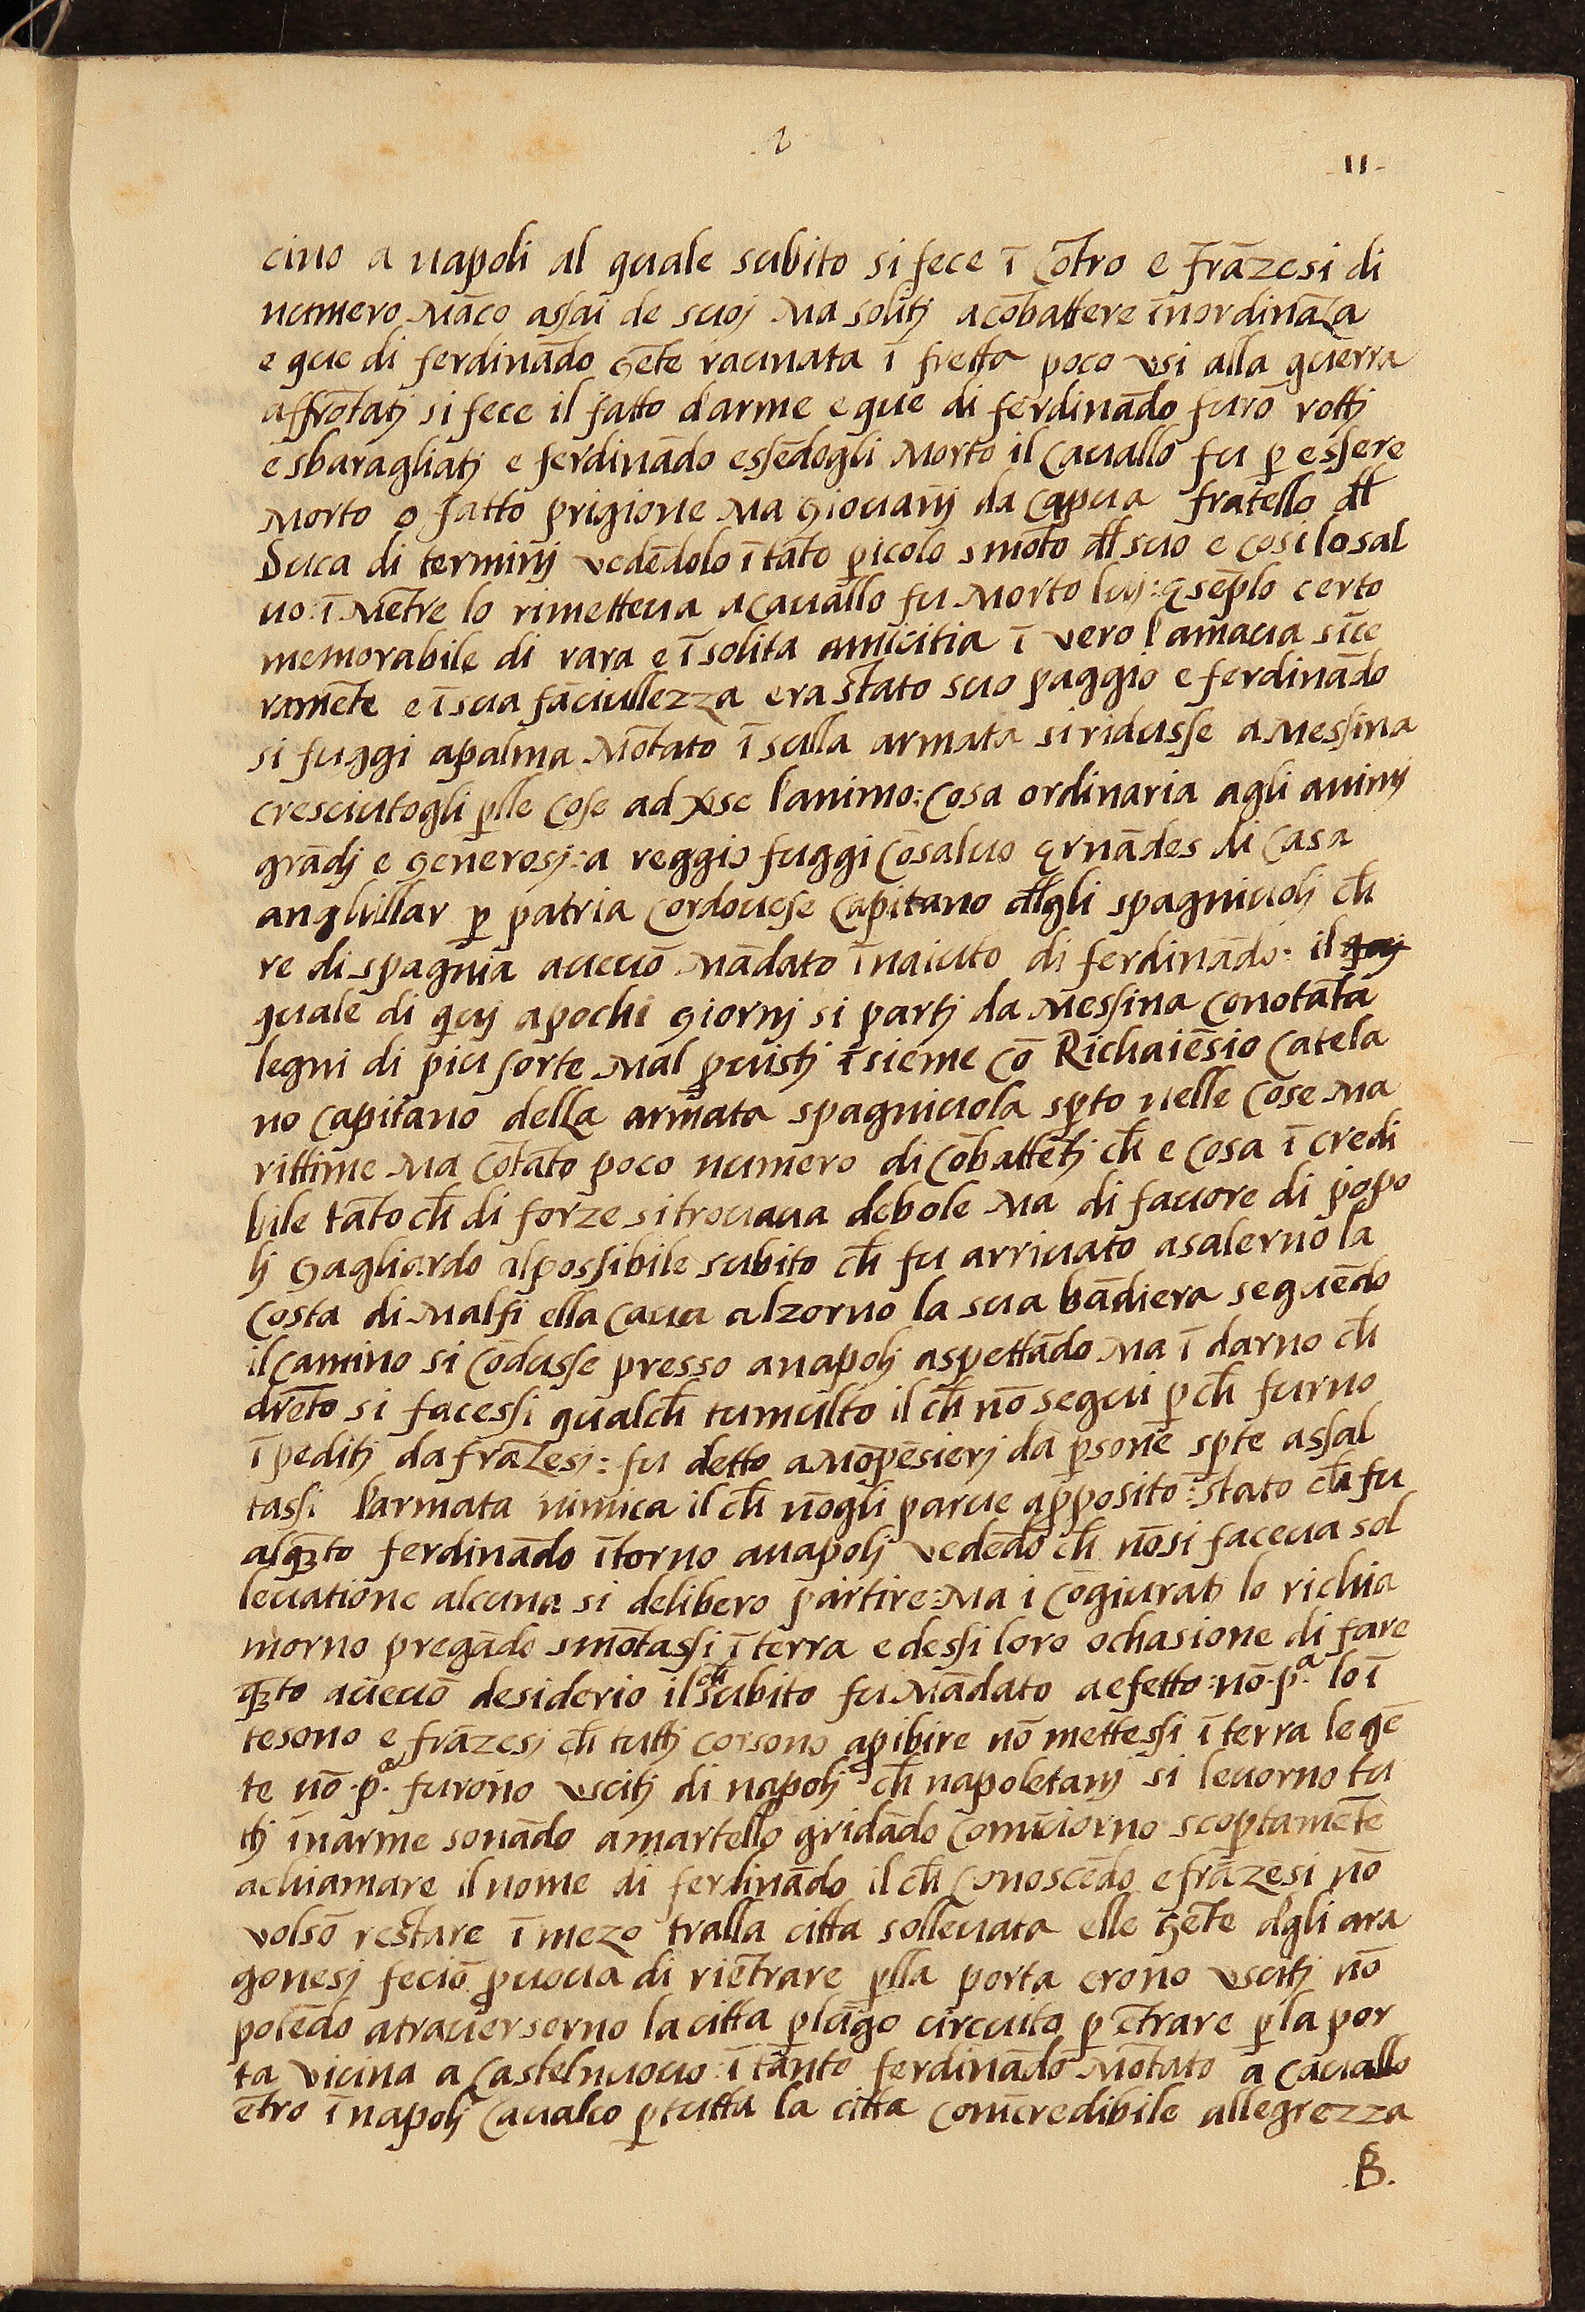 2
11
cino a napoli al quale subito si fece ī cōtro e frāzesi di
numero māco assai de suoj ma solitj acōbattere īnordināza
e que di ferdinādo gēte raunata ī fretta poco usi alla guerra
affrōtatj si fece il fatto d'arme e que di ferdinādo furō rottj
e sbaragliatj e ferdinādo essēdogli morto il cauallo fu ꝑ essere
morto o fatto prigione ma giouāni da capua fratello dl̄
Duca di terminj vedēdolo ī tāto ꝑicolo smōto dl̄ suo e cosi lo sal
uo: ī mētre lo rimetteua acauallo fu morto luj: esēplo certo
memorabile di rara e īsolita amicitia ī vero l'amaua sīce
ramēte e ī sua fāciullezza era stato suo paggio e ferdinādo
si fuggi apalma mōtato ī sulla armata si ridusse a messina
cresciutogli ꝑlle cose aduerse l'animo: cosa ordinaria agli animj
grādj e generosj: a reggio fuggi cōsaluo ernādes di casa
anghillar ꝑ patria cordouese capitano dl̄gli spagniuolj ch̄
re di spagnia aueuō mādato īnaiuto di ferdinādo: il quj
quale di quj apochi giornj si partj da messina conotāta
legni di piu sorte mal ꝓuistj īsieme cō Richaiēsio catela
no capitano della armata spagniuola sꝑto nelle cose ma
rittime ma cōtāto poco numero di cōbattētj ch̄ e cosa ī credi
bile tāto ch̄ di forze si trouaua debole ma di fauore di popo
lj gagliardo alpossibile subito ch̄ fu arriuato asalerno la
costa di malfi ella caua alzorno la sua bādiera seguēdo
il camino si cōdusse presso anapolj aspettādo ma ī darno ch̄
drēto si facessi qualch̄ tumulto il ch̄ nō segui ꝑch̄ furno
īpeditj da frāzesj: fu detto amōpēsierj da ꝑsone sꝑte assal
tassi l'armata nimica il ch̄ nōgli parue aꝓposito: stato ch̄ fu
alqꝫto ferdinādo ītorno anapolj vedēdo ch̄ nōsi faceua sol
leuatione alcuna si delibero partire: ma i cōgiuratj lo richia
morno pregādo smōtassi ī terra e dessi loro ochasione di fare
qꝫto aueuō desiderio il ch̄ subito fu mādato aefetto: nō .pᵃ. lo ī
tesono e frāzesj ch̄ tuttj corsono aꝓibire nō mettessi ī terra le gē
te nō .pᵃ. furono uscitj di napolj ch̄ napoletanj si leuorno tu
ttj īnarme sonādo amartello gridādo comīciorno scoꝑtamēte
achiamare il nome di ferdinādo il ch̄ conoscēdo e frāzesi nō
volsō restare ī mezo tralla citta solleuata elle gēte dgli ara
gonesj feciō pruoua di riētrare ꝑlla porta erono uscitj nō
potēdo atrauerserno la citta ꝑ lūgo circuito ꝑ ētrare ꝑ la por
ta vicina a castelnuouo: ī tanto ferdinādo mōtato a cauallo
ētro ī napolj caualco ꝑ tutta la citta comīcredibile allegrezza
.B.